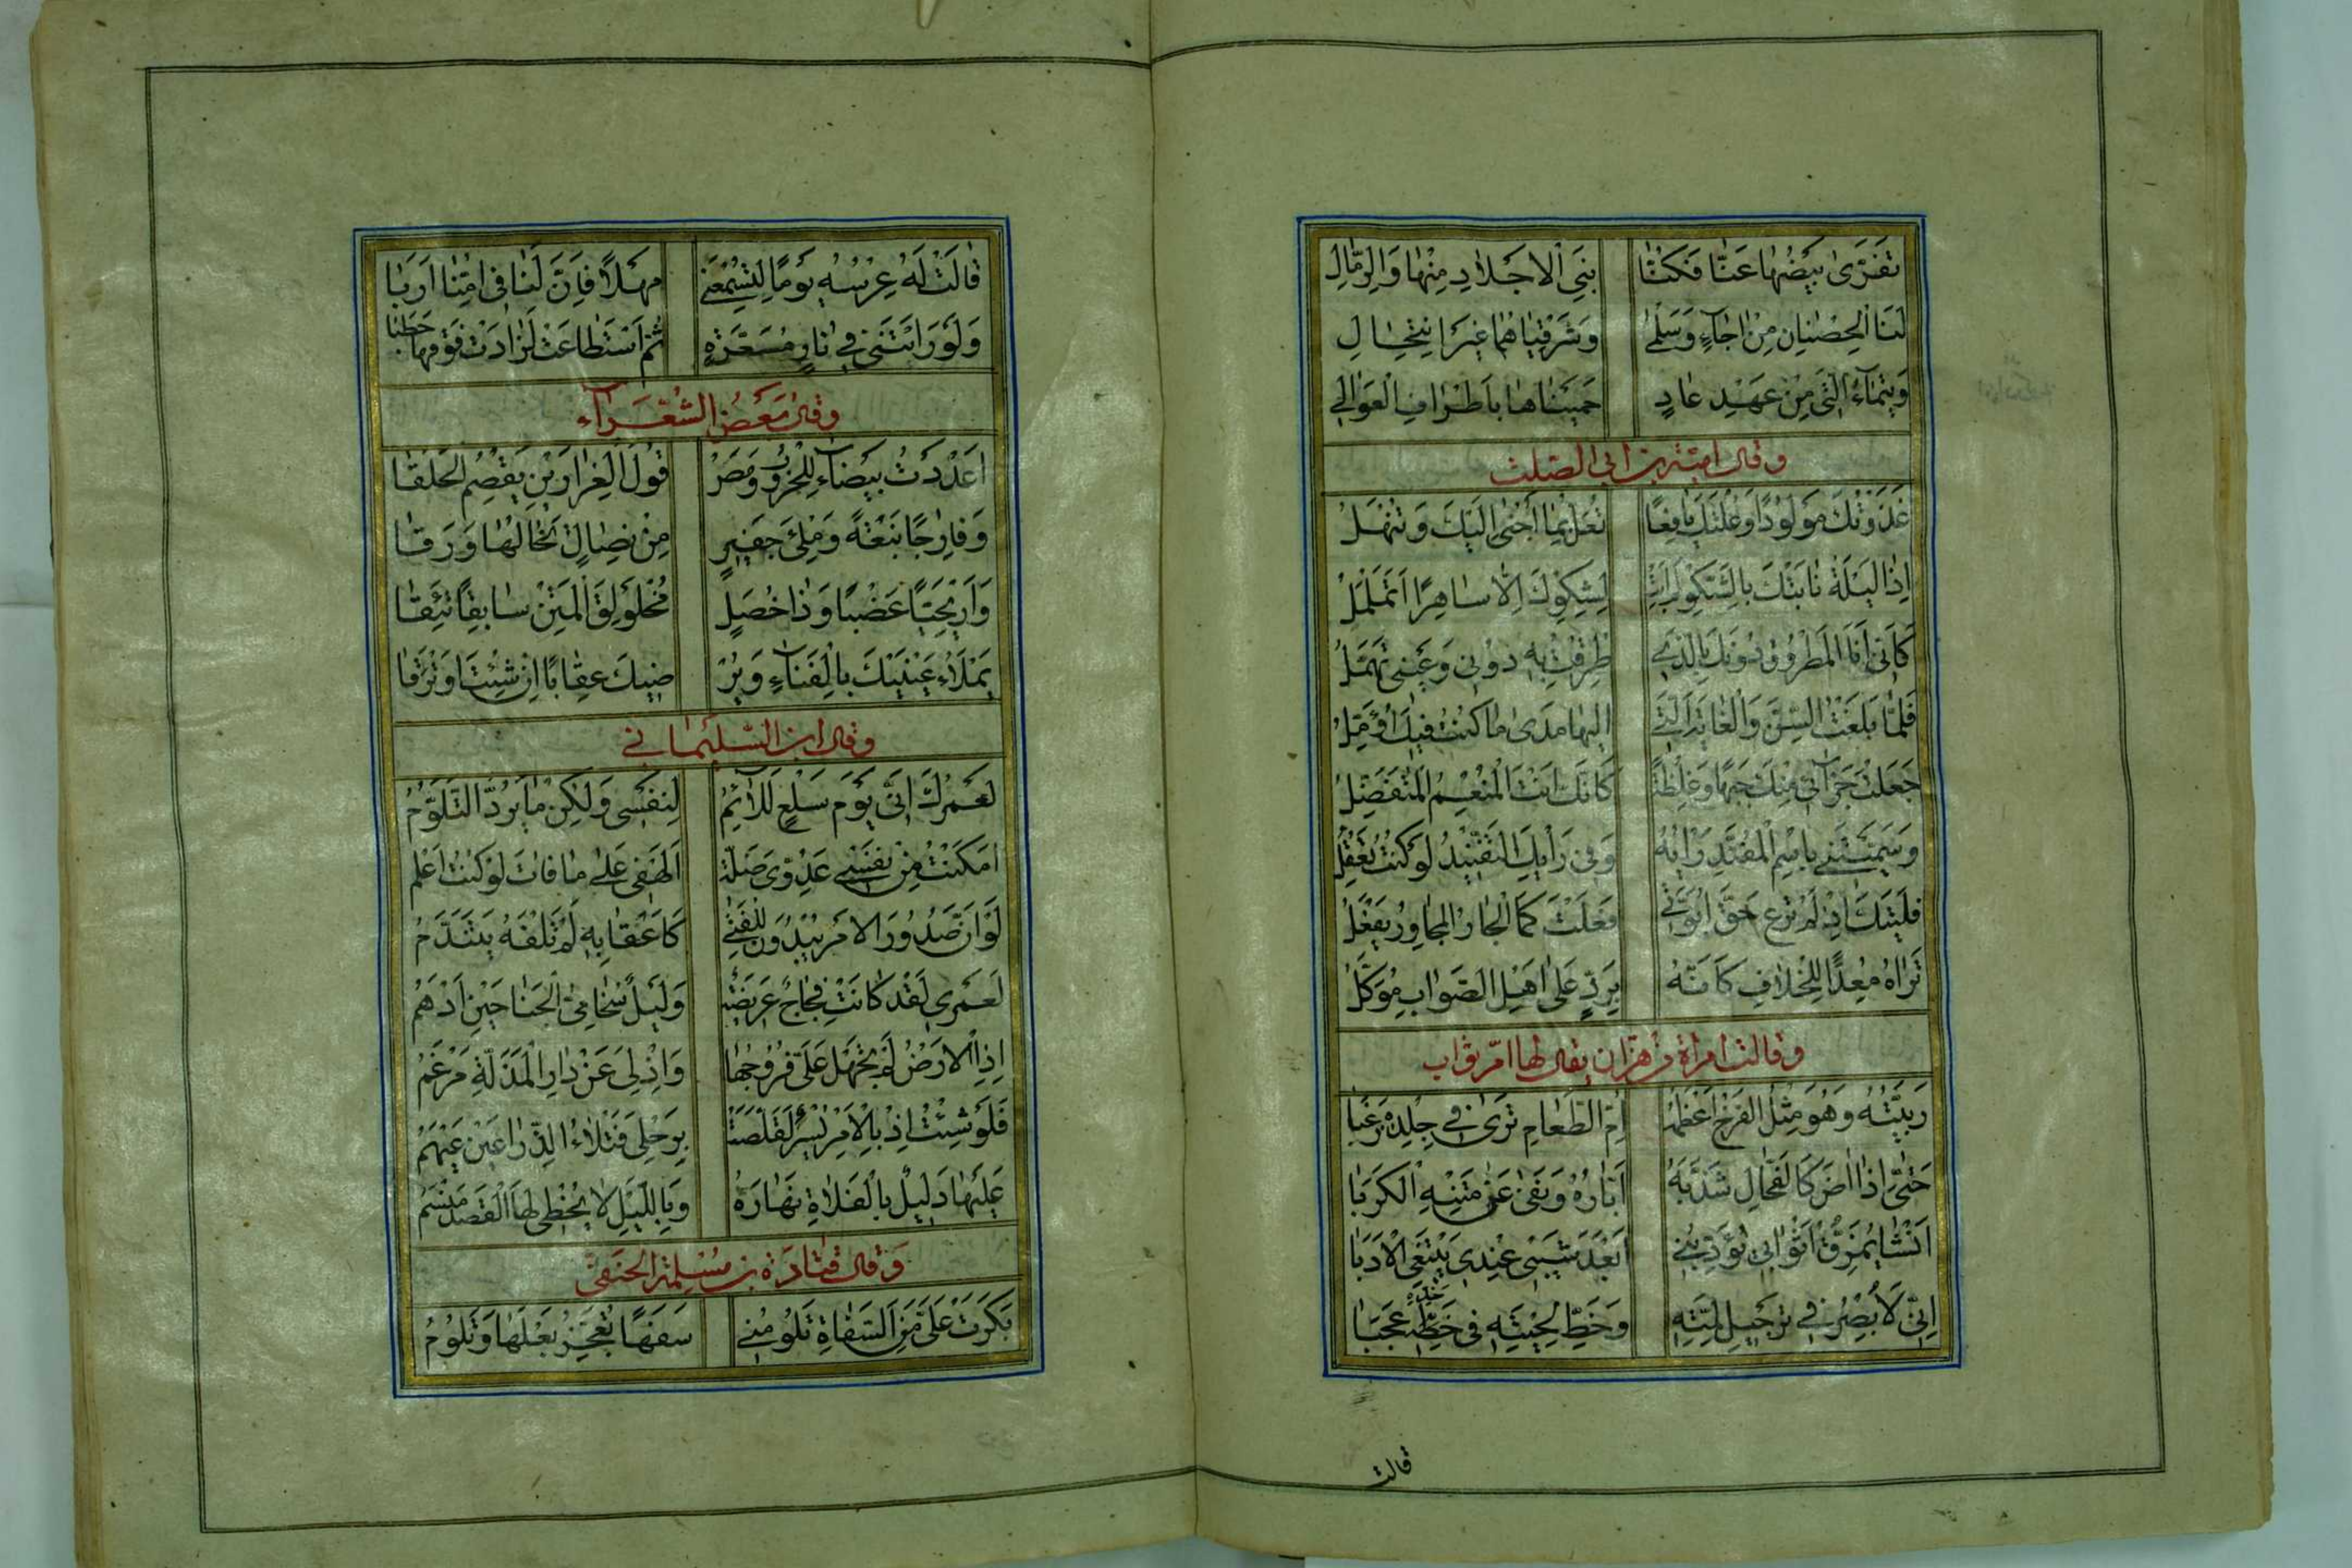 تَفَرَّىٰ بَيْضُهَا عَنَّا فَكُنَّا بَنِي الْاَجْلَادِ مِنْهَا وَالرِّمَالِ
لَنَا الْحِصْنَانِ مِنْ اَجَاءٍ وَسَلْمٰى وَشَرْقِيَّاهُمَا غَيْرَ انْتِحَالِ
وَتَيْمَاءُ الَّتِي مِنْ عَهْدِ عَادٍ حَمَيْنَاهَا بِاَطْرَافِ الْعَوَالِي
وقال امية بن ابى الصلت
غَذَوْتُكَ مَوْلُودًا وَعُلْتُكَ يَافِعًا تُعَلُّ بِمَا اَجْنِي اِلَيْكَ وَتُنْهَلُ
اِذَا لَيْلَةٌ نَابَتْكَ بِالشَّكْوِ لَمْ اَبِتْ لِشَكْوِكَ اِلَّا سَاهِرًا اَتَمَلْمَلُ
كَاَنِّي اَنَا الْمَطْرُوقُ دُونَكَ بِالَّذِي طُرِقْتَ بِهِ دُونِي وَعَيْنِي تَهْمَلُ
فَلَمَّا بَلَغْتَ السِّنَّ وَالْغَايَةَ الَّتِي اِلَيْهَا مَدَى مَا كُنْتُ فِيكَ اُؤَمِّلُ
جَعَلْتَ جَزَائِي مِنْكَ جَبْهًا وَغِلْظَةً كَاَنَّكَ اَنْتَ الْمُنْعِمُ الْمُتَفَضِّلُ
وَسَمَّيْتَنِي بِاسْمِ الْمُفَنَّدِ رَاْيُهُ وَفِي رَاْيِكَ التَّفْنِيدُ لَوْ كُنْتَ تَعْقِلُ
فَلَيْتَكَ اِذْ لَمْ تَرْعَ حَقَّ اُبُوَّتِي فَعَلْتَ كَمَا الْجَارُ الْمُجَاوِرُ يَفْعَلُ
تَرَاهُ مُعِدًّا لِلْخِلَافِ كَاَنَّهُ بِرَدٍّ عَلَى اَهْلِ الصَّوَابِ مُوَكَّلُ
وقالت امراة من هزان يقال لها ام ثواب
رَبَّيْتُهُ وَهُوَ مِثْلُ الْفَرْخِ اَعْظَمُهُ اُمُّ الطَّعَامِ تَرَى فِي جِلْدِهِ زَغَبَا
حَتّٰى اِذَا اٰضَ كَالْفُحَّالِ شَذَّبَهُ اَبَّارُهُ وَنَفٰى عَنْ مَتْنِهِ الْكَرَبَا
اَنْشَا يُمَزِّقُ اَثْوَابِي يُؤَدِّبُنِي اَبَعْدَ شَيْبِي عِنْدِي يَبْتَغِي الْاَدَبَا
اِنِّي لَاُبْصِرُ فِي تَرْجِيلِ لِمَّتِهِ وَخَطِّ لِحْيَتِهِ فِي خَطِّهِ عَجَبَا
خَدِّهِ
قالت
قَالَتْ لَهُ عِرْسُهُ يَوْمًا لِتُسْمِعَنِي مَهْلًا فَاِنَّ لَنَا فِي اُمِّنَا اَرَبَا
وَلَوْ رَاَتْنِي فِي نَارٍ مُسَعَّرَةٍ ثُمَّ اسْتَطَاعَتْ لَزَادَتْ فَوْقَهَا حَطَبَا
وقال بَعْضُ الشُّعَرَاءِ
اَعْدَدْتُ بَيْضَاءَ لِلْحُرُوبِ وَمَصْ قُولَ الْغِرَارَيْنِ يَقْصِمُ الْحَلَقَا
وَفَارِجًا نَبْعَةً وَمِلْئَ جَفِيرٍ مِنْ نِصَالٍ تَخَالُهَا وَرَقَا
وَاَرْيَحِيًّا عَضْبًا وَذَا خُصَلٍ مُخْلَوْلِقَ الْمَتْنِ سَابِقًا تَئِقَا
يَمْلَاُ عَيْنَيْكَ بِالْفِنَاءِ وَيُرْ ضِيكَ عِقَابًا اِنْ شِئْتَ اَوْ نَزَقَا
وقال ابن السُّلَيْمَانِي
لَعَمْرُكَ اِنِّي يَوْمَ سَلْعٍ لَلَائِمُ لِنَفْسِي وَلٰكِنْ مَا يَرُدُّ التَّلَوُّمُ
اَمْكَنْتُ مِنْ نَفْسِي عَدُوِّي ضَلَّةً اَلَهْفِي عَلٰى مَا فَاتَ لَوْ كُنْتُ اَعْلَمُ
لَوْ اَنَّ صُدُورَ الْاَمْرِ يَبْدُونَ لِلْفَتٰى كَاَعْقَابِهِ لَمْ تُلْفِهِ يَتَنَدَّمُ
لَعَمْرِي لَقَدْ كَانَتْ فِجَاجٌ عَرِيضَةٌ وَلَيْلٌ سُخَامِيُّ الْجَنَاحَيْنِ اَدْهَمُ
اِذِ الْاَرْضُ لَمْ تَجْهَلْ عَلَيَّ فُرُوجُهَا وَاِذْ لِي عَنْ دَارِ الْمَذَلَّةِ مَرْغَمُ
فَلَوْ شِئْتُ اِذْ بِالْاَمْرِ يُسْرٌ لَقَلَّصَتْ بِرَحْلِي فَتْلَاءُ الذِّرَاعَيْنِ عَيْهَمُ
عَلَيْهَا دَلِيلٌ بِالْفَلَاةِ نَهَارَهُ وَبِاللَّيْلِ لَا يُخْطِي لَهَا الْقَصْدَ مَنْسِمُ
وَقال قَتَادَة بن مَسْلِمَة الحَنَفِيّ
بَكَرَتْ عَلَيَّ مِنَ السَّفَاةِ تَلُومُنِي سَفَهًا تُعَجِّزُ بَعْلَهَا وَتَلُومُ